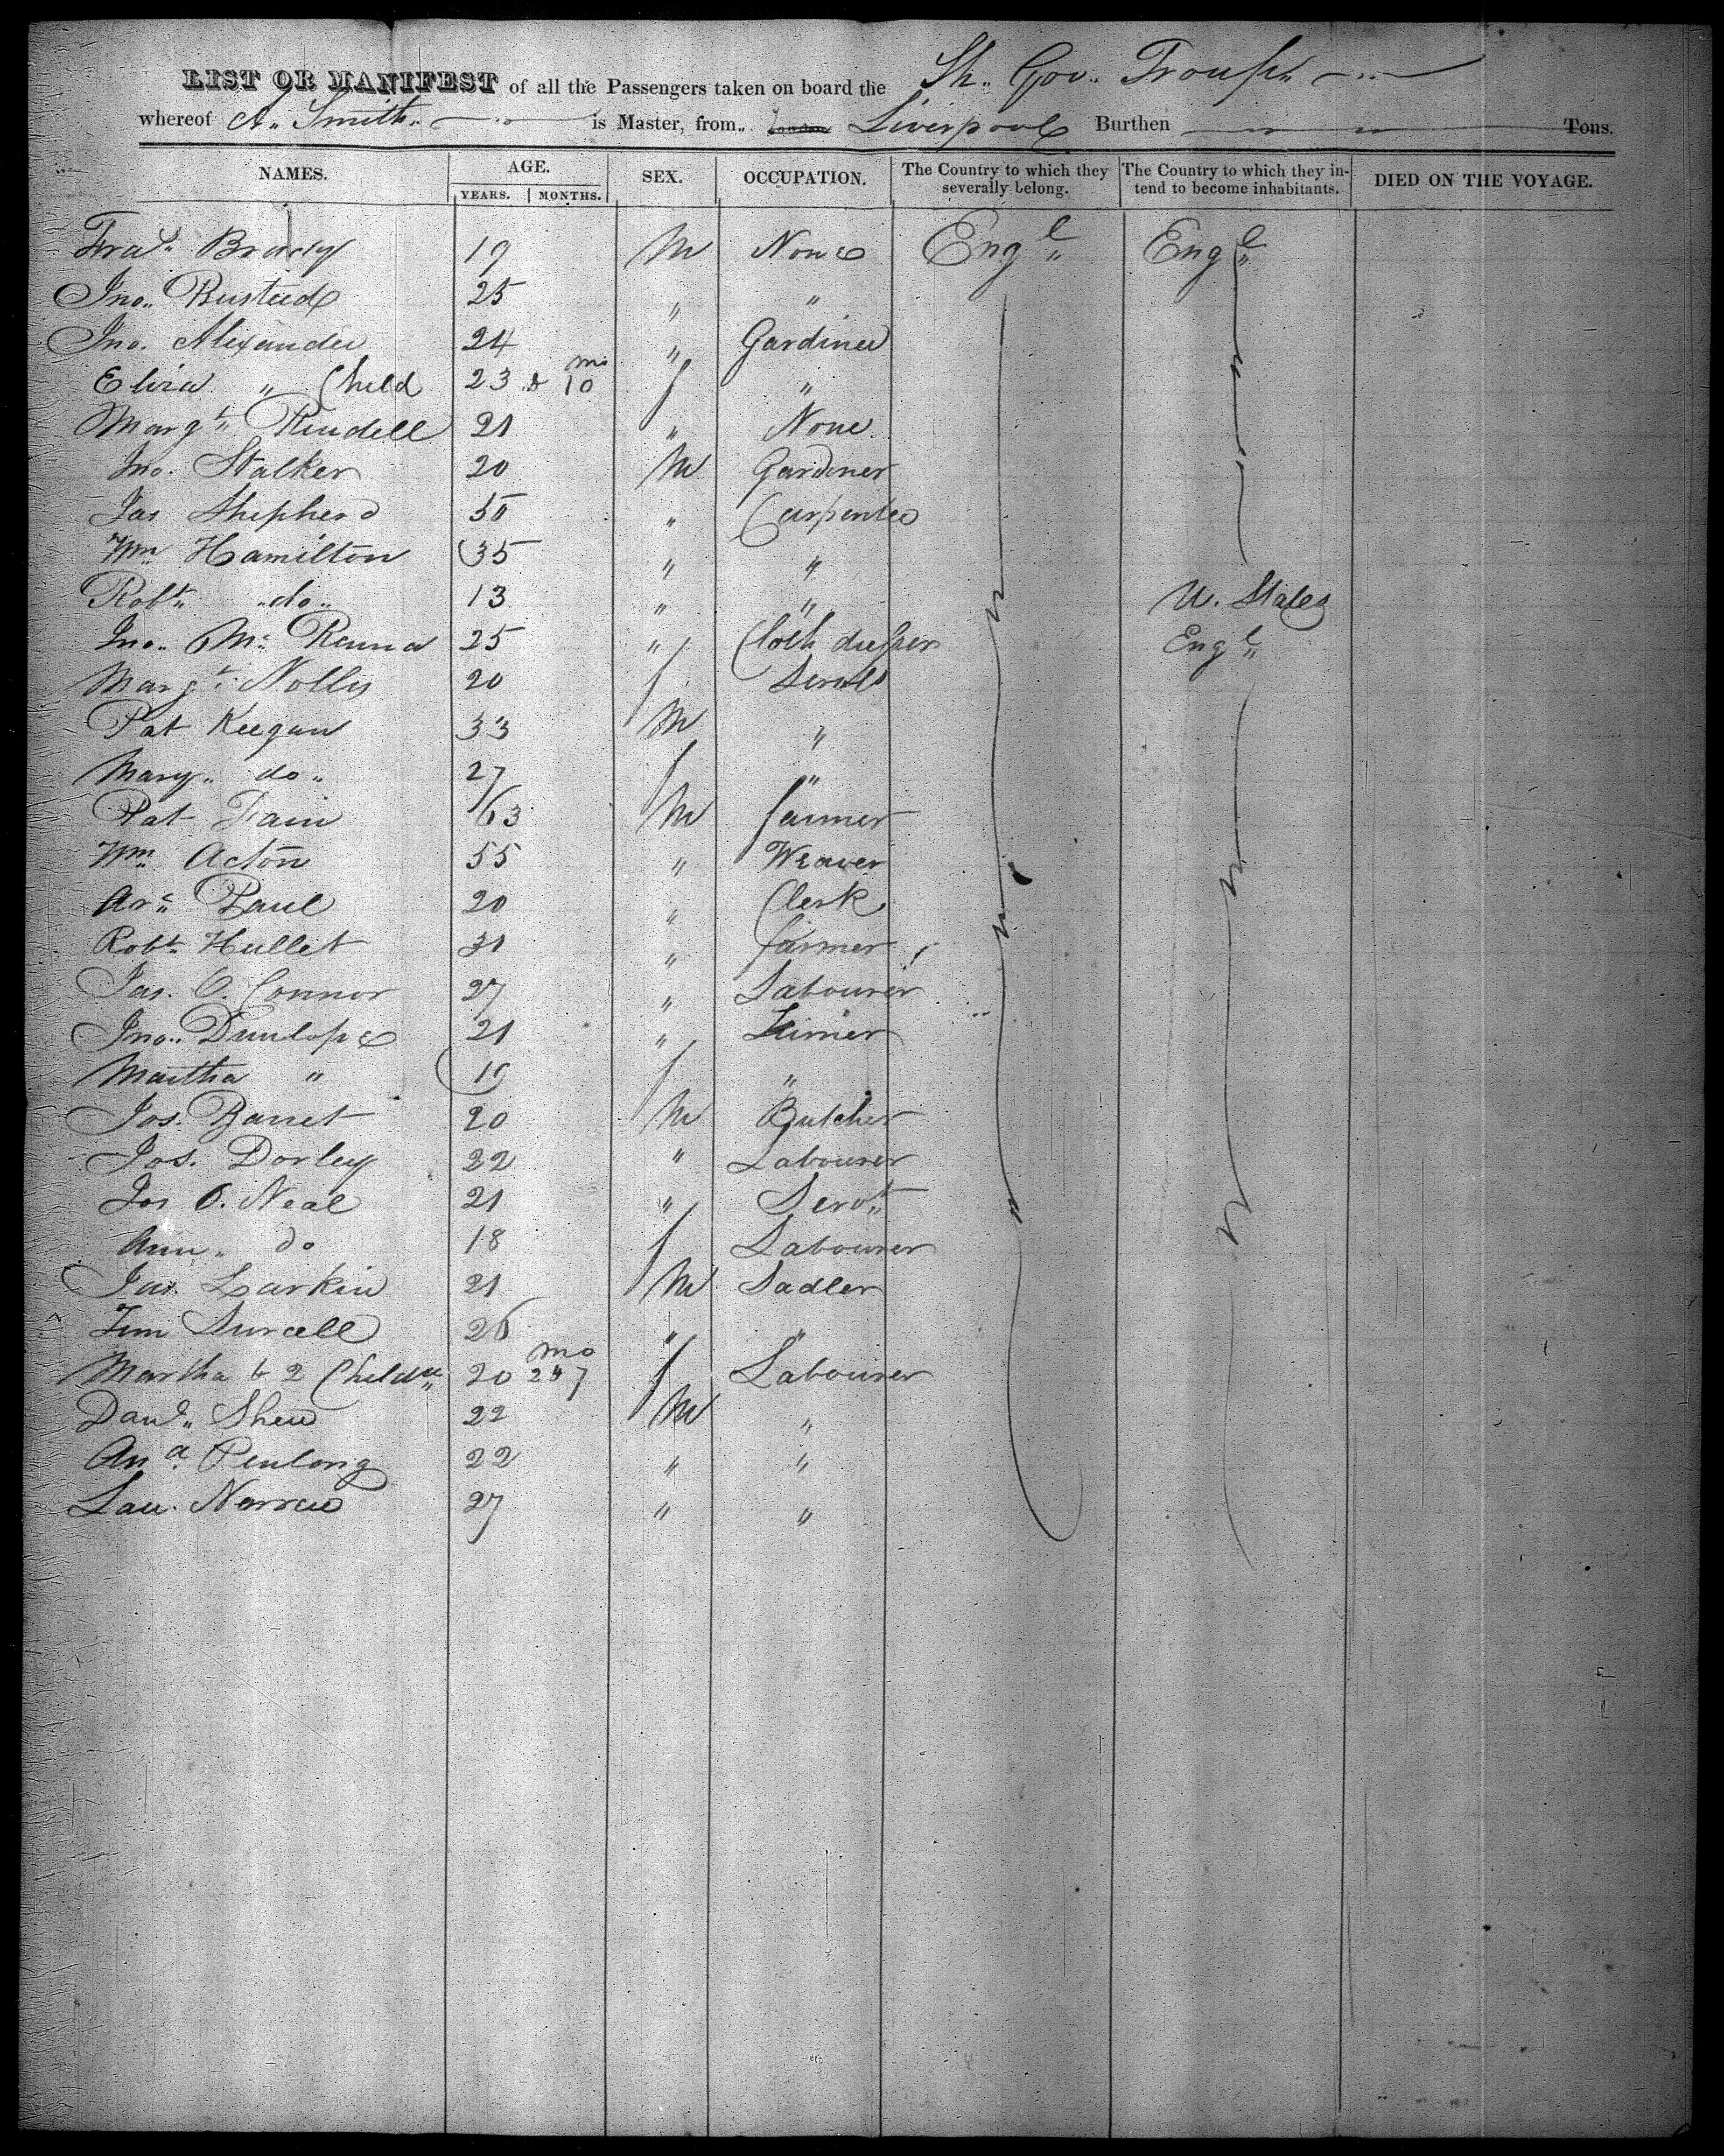 LIST OR MANIFEST of all the Passengers taken on board the Sh. Gov. Troup
whereof A. Smith is Master, from London Liverpool Burthen Tons.
NAMES. AGE. SEX. OCCUPATION. The Country to which they severally belong. The Country to which they intend to become inhabitants. DIED ON THE VOYAGE.
YEARS. MONTHS.
Fras. Brady 19 M None Engd Engd
Jno. Bustud 25 " "
Jno. Alexander 24 " Gardiner
Eliza " Child 23 & 10 mo f "
Margt. Rindell 21 " None
Jno. Stalker 20 M Gardiner
Jas Shipherd 50 " Carpenter
Wm Hamilton 35 " "
Robt. do 13 " " U. States
Jno. Mc 25 " Cloth dresser Engd
Margt. Nollis 20 f Servt
Pat Keegan 33 M "
Mary do 27 f "
Pat Fain 63 M farmer
Wm. Acton 55 " Weaver
Paul 20 " Clerk
Robt. Hullet 31 " farmer
Jas. O. Connor 27 " Labourer
Jno. Dunlop 21 "
Martha " 19 f "
Jos. Barret 20 M Butcher
Jos. Dorley 22 " Labourer
Jas O. Neal 21 " Servt
Ann do 18 f Labourer
Jas. Larkin 21 M Sadler
Tim 26 " "
Martha & 2 Childn 20 2 & 7 mo f Labourer
Danl. Shew 22 M "
Penlong 22 " "
Lau. 27 " "